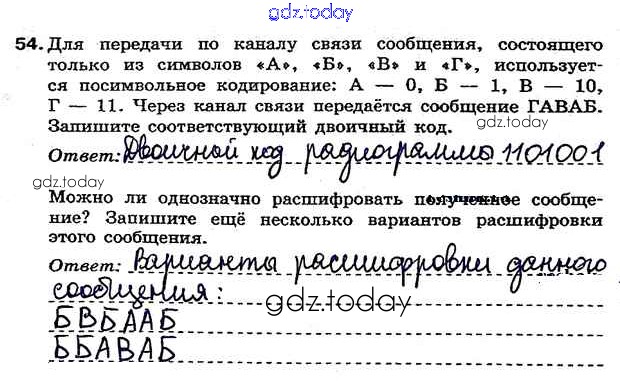 gdz.today
54. Для передачи по каналу связи сообщения, состоящего
только из символов «А», «Б», «В» и «Г», использует-
ся посимвольное кодирование: А — 0, Б — 1, В — 10,
Г — 11. Через канал связи передаётся сообщение ГАВАБ.
Запишите соответствующий двоичный код.
gdz.today
Ответ: Двоичной код радиограммы 1101001
gdz.today
Можно ли однозначно расшифровать полученное сообще-
ние? Запишите ещё несколько вариантов расшифровки
этого сообщения.
Ответ: Варианты расшифровки данного
сообщения:
gdz.today
БВБААБ
ББАВАБ